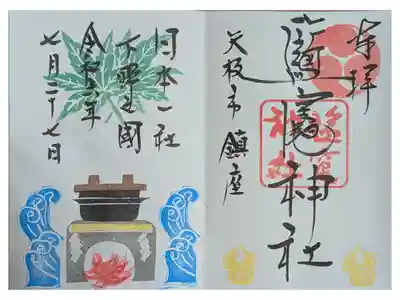 奉拝
鹽竈神社
矢板市鎮座
日本一社
下野之國
令和五年
七月二十七日